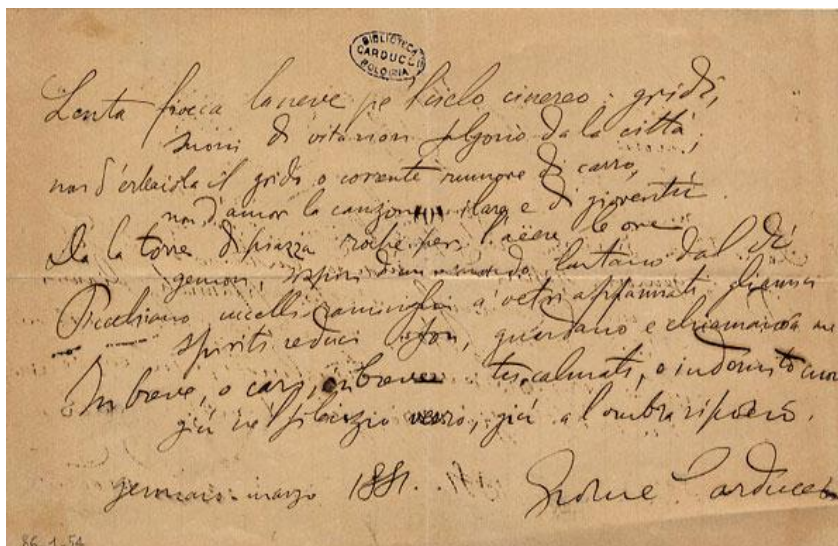 BIBLIOTECA
CARDUCCI
BOLOGNA
Lenta fiocca la neve pe 'l cielo cinereo: gridi,
suoni di vita non salgono da la città,
non d'erbaiola il grido o corrente rumore di carro,
non d'amor la canzon ilare e di gioventù.
Da la torre di piazza roche per l'aere le ore
gemon, sospir d'un mondo lontano dal dì.
Picchiano uccelli raminghi a' vetri appannati: gli amici
spiriti reduci son, guardano e chiamano a me.
In breve, o cari, in breve tu calmati, o indomito cuore
giù nel silenzio verrò, giù a l'ombra riposerò.
gennaio-marzo 1881.
Giosue Carducci
86-1-54